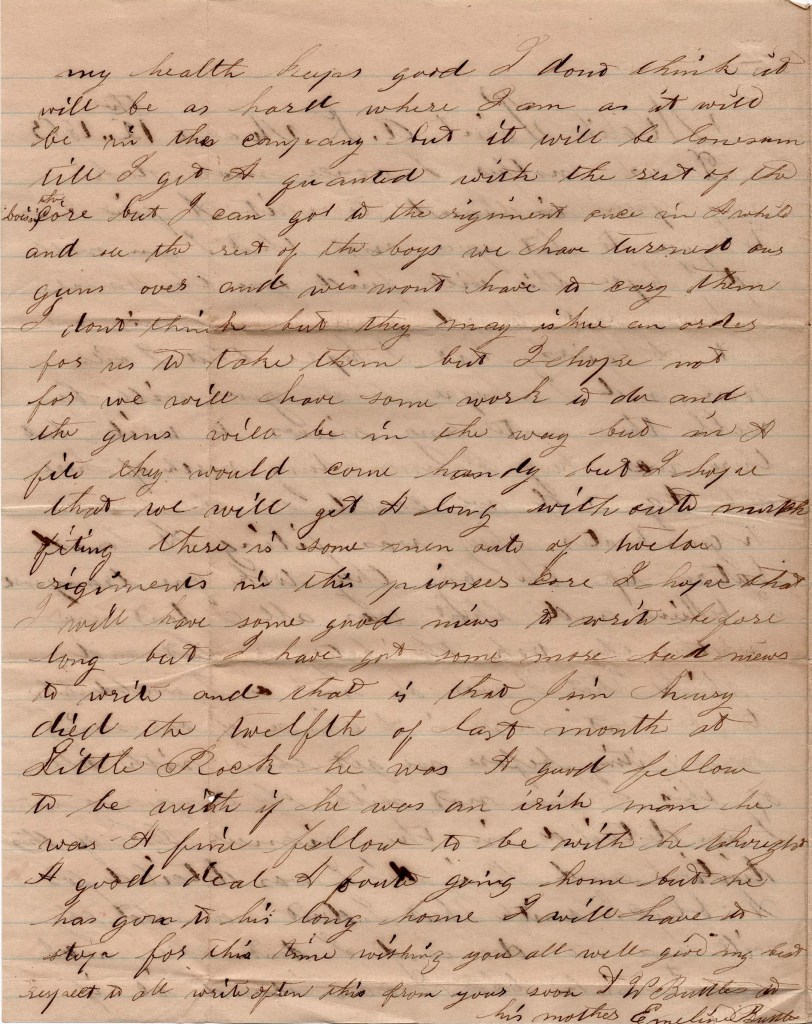 my health keeps good I dont think it
will be as hard where I am as it will
be in the company but it will be lonesum
till I get A quanted with the rest of the
boies in the core but I can got to the rigiment once in A while
and see the rest of the boys we have turned our
guns over and we wont have to cary them
I dont think but they may ishue an order
for us to take them but I hope not
for we will have some work to do and
the guns will be in the way but in A
fite they would come handy but I hope
that we will get A long without much
fiting there is some men out of twelve
rigiments in this pioneer core I hope that
I will have some good niews to write before
long but I have got some more bad niews
to write and that is that
died the twelfth of last month at
Little Rock he was A good fellow
to be with if he was an irish man he
was A fine fellow to be with he thought
A good deal A bout going home but he
has gon to his long home I will have to
stop for this time wishing you all well give my best
respect to all write often this from your soon D W Buttles to
his mother Emeline Buttles